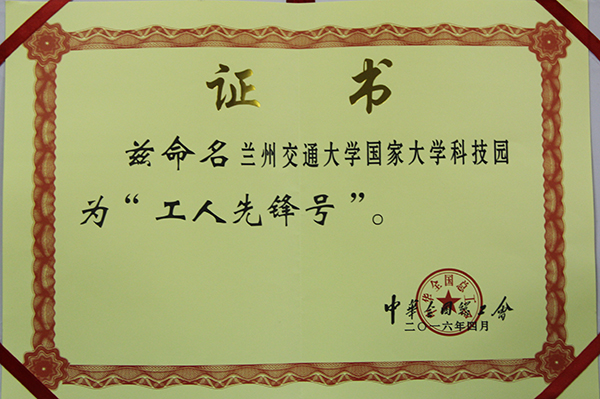 证 书
兹命名兰州交通大学国家大学科技园
为“工人先锋号”。
中华全国总工会
二〇一六年四月